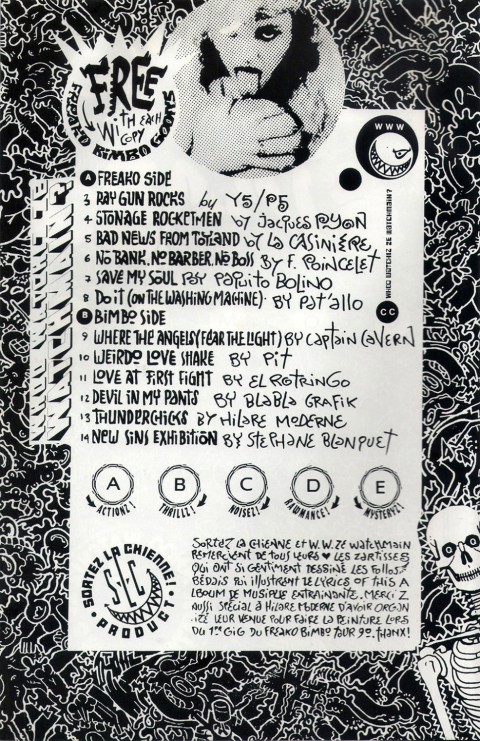 FREE
With EACH COPY
FREAKO BIMBO GOONS
WWW
WHO WATCHEZ ZE WATCHMAIN?
CC
A FREAKO SIDE
3 RAY GUN ROCKS by Y5/P5
4 STONAGE ROCKETMEN by JACQUES PYON
5 BAD NEWS FROM TOYLAND by LA CASINIÈRE
6 NO BANK, NO BARBER, NO BOSS BY F. POINCELET
7 SAVE MY SOUL PAR PAQUITO BOLINO
8 DO IT (ON THE WASHING MACHINE). BY PAT'ALLO
B BIMBO SIDE
9 WHERE THE ANGELS (FEAR THE LIGHT) BY CAPTAIN CAVERN
10 WEIRDO LOVE SHAKE BY PIT
11 LOVE AT FIRST FIGHT BY EL ROTRINGO
12 DEVIL IN MY PANTS BY BLABLA GRAFIK
13 THUNDERCHICKS BY HILARE MODERNE
14 NEW SINS EXHIBITION BY STEPHANE BLANQUET
A B C D E
ACTIONZ! THRILLZ! NOISEZ! RAWMANCE! MYSTERYZ!
SORTEZ LA CHIENNE!
SLC
PRODUCT
SORTEZ LA CHIENNE ET W.W. ZE WATCHMAIN
REMERCIENT DE TOUS LEURS ♥ LES ZARTISSES
QUI ONT SI GENTIMENT DESSINÉ LES FOLLES
BÉDAIS QUI ILLUSTRENT LE LYRICS OF THIS A
LBOUM DE MUSIQUE ENTRAINANTE. MERCI Z
AUSSI SPÉCIAL À HILARE MODERNE D'AVOIR ORGAN
ISÉ LEUR VENUE POUR FAIRE LA PEINTURE LORS
DU 1ER GIG DU FREAKO BIMBO TOUR 90. THANX!